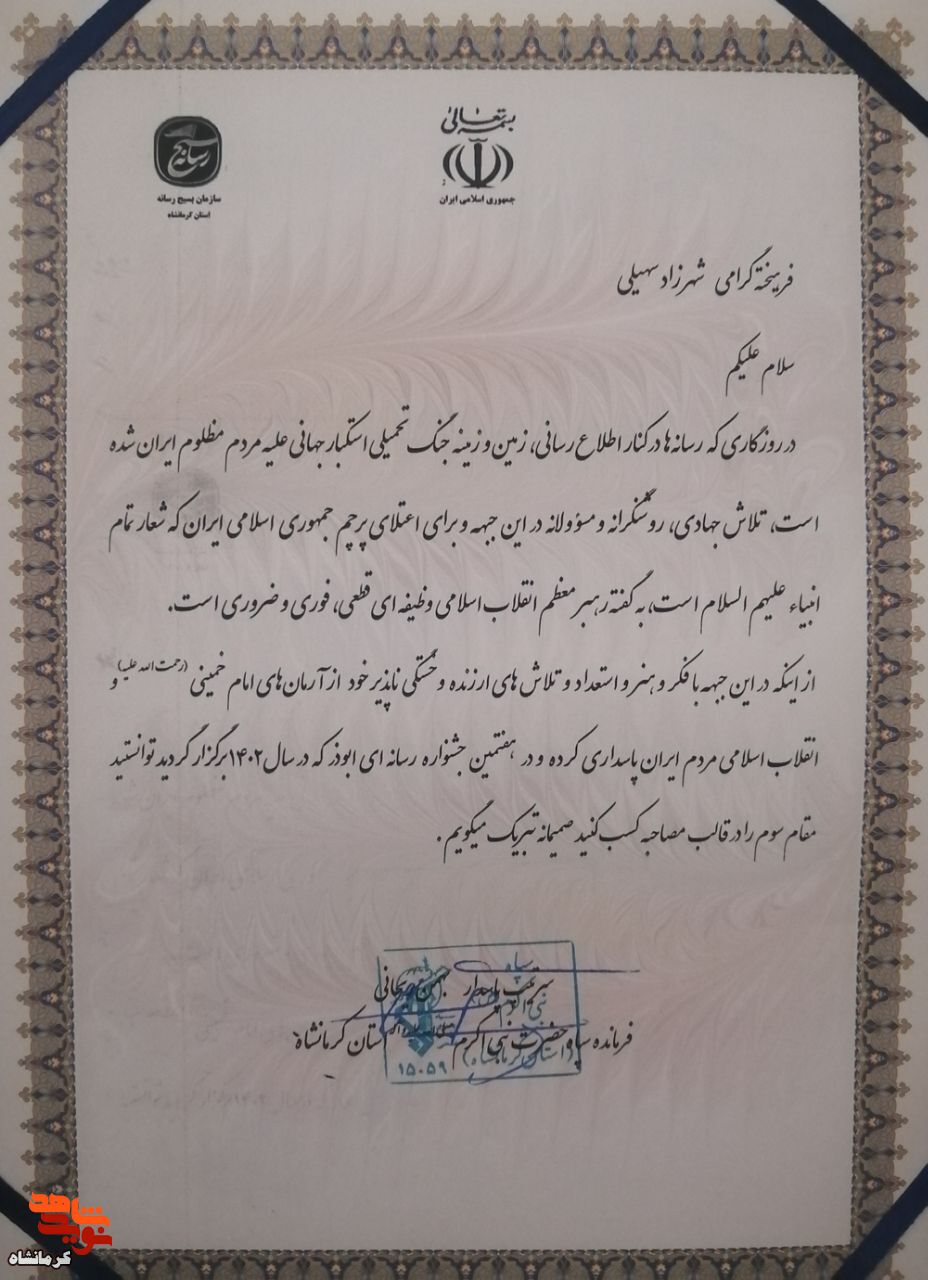 بسمه تعالی
جمهوری اسلامی ایران
بسیج رسانه
سازمان بسیج رسانه
استان کرمانشاه
فرهیخته گرامی شهرزاد سهیلی
سلام علیکم
در روزگاری که رسانه‌ها در کنار اطلاع رسانی، زمین و زمینه جنگ تحمیلی استکبار جهانی علیه مردم مظلوم ایران شده
است، تلاش جهادی، روشنگرانه و مسؤولانه در این جبهه و برای اعتلای پرچم جمهوری اسلامی ایران که شعار تمام
انبیاء علیهم السلام است، به گفته رهبر معظم انقلاب اسلامی وظیفه ای قطعی، فوری و ضروری است.
از اینکه در این جبهه با فکر و هنر و استعداد و تلاش های ارزنده و خستگی ناپذیر خود از آرمان‌های امام خمینی (رحمت الله علیه) و
انقلاب اسلامی مردم ایران پاسداری کرده و در هفتمین جشنواره رسانه ای ابوذر که در سال ۱۴۰۲ برگزار گردید توانستید
مقام سوم را در قالب مصاحبه کسب کنید صمیمانه تبریک میگویم.
سرتیپ پاسدار بهمن ریحانی
فرمانده سپاه حضرت نبی اکرم استان کرمانشاه
سپاه
نبی اکرم
(استان کرمانشاه)
۱۵۰۵۹
نوید شاهد
کرمانشاه